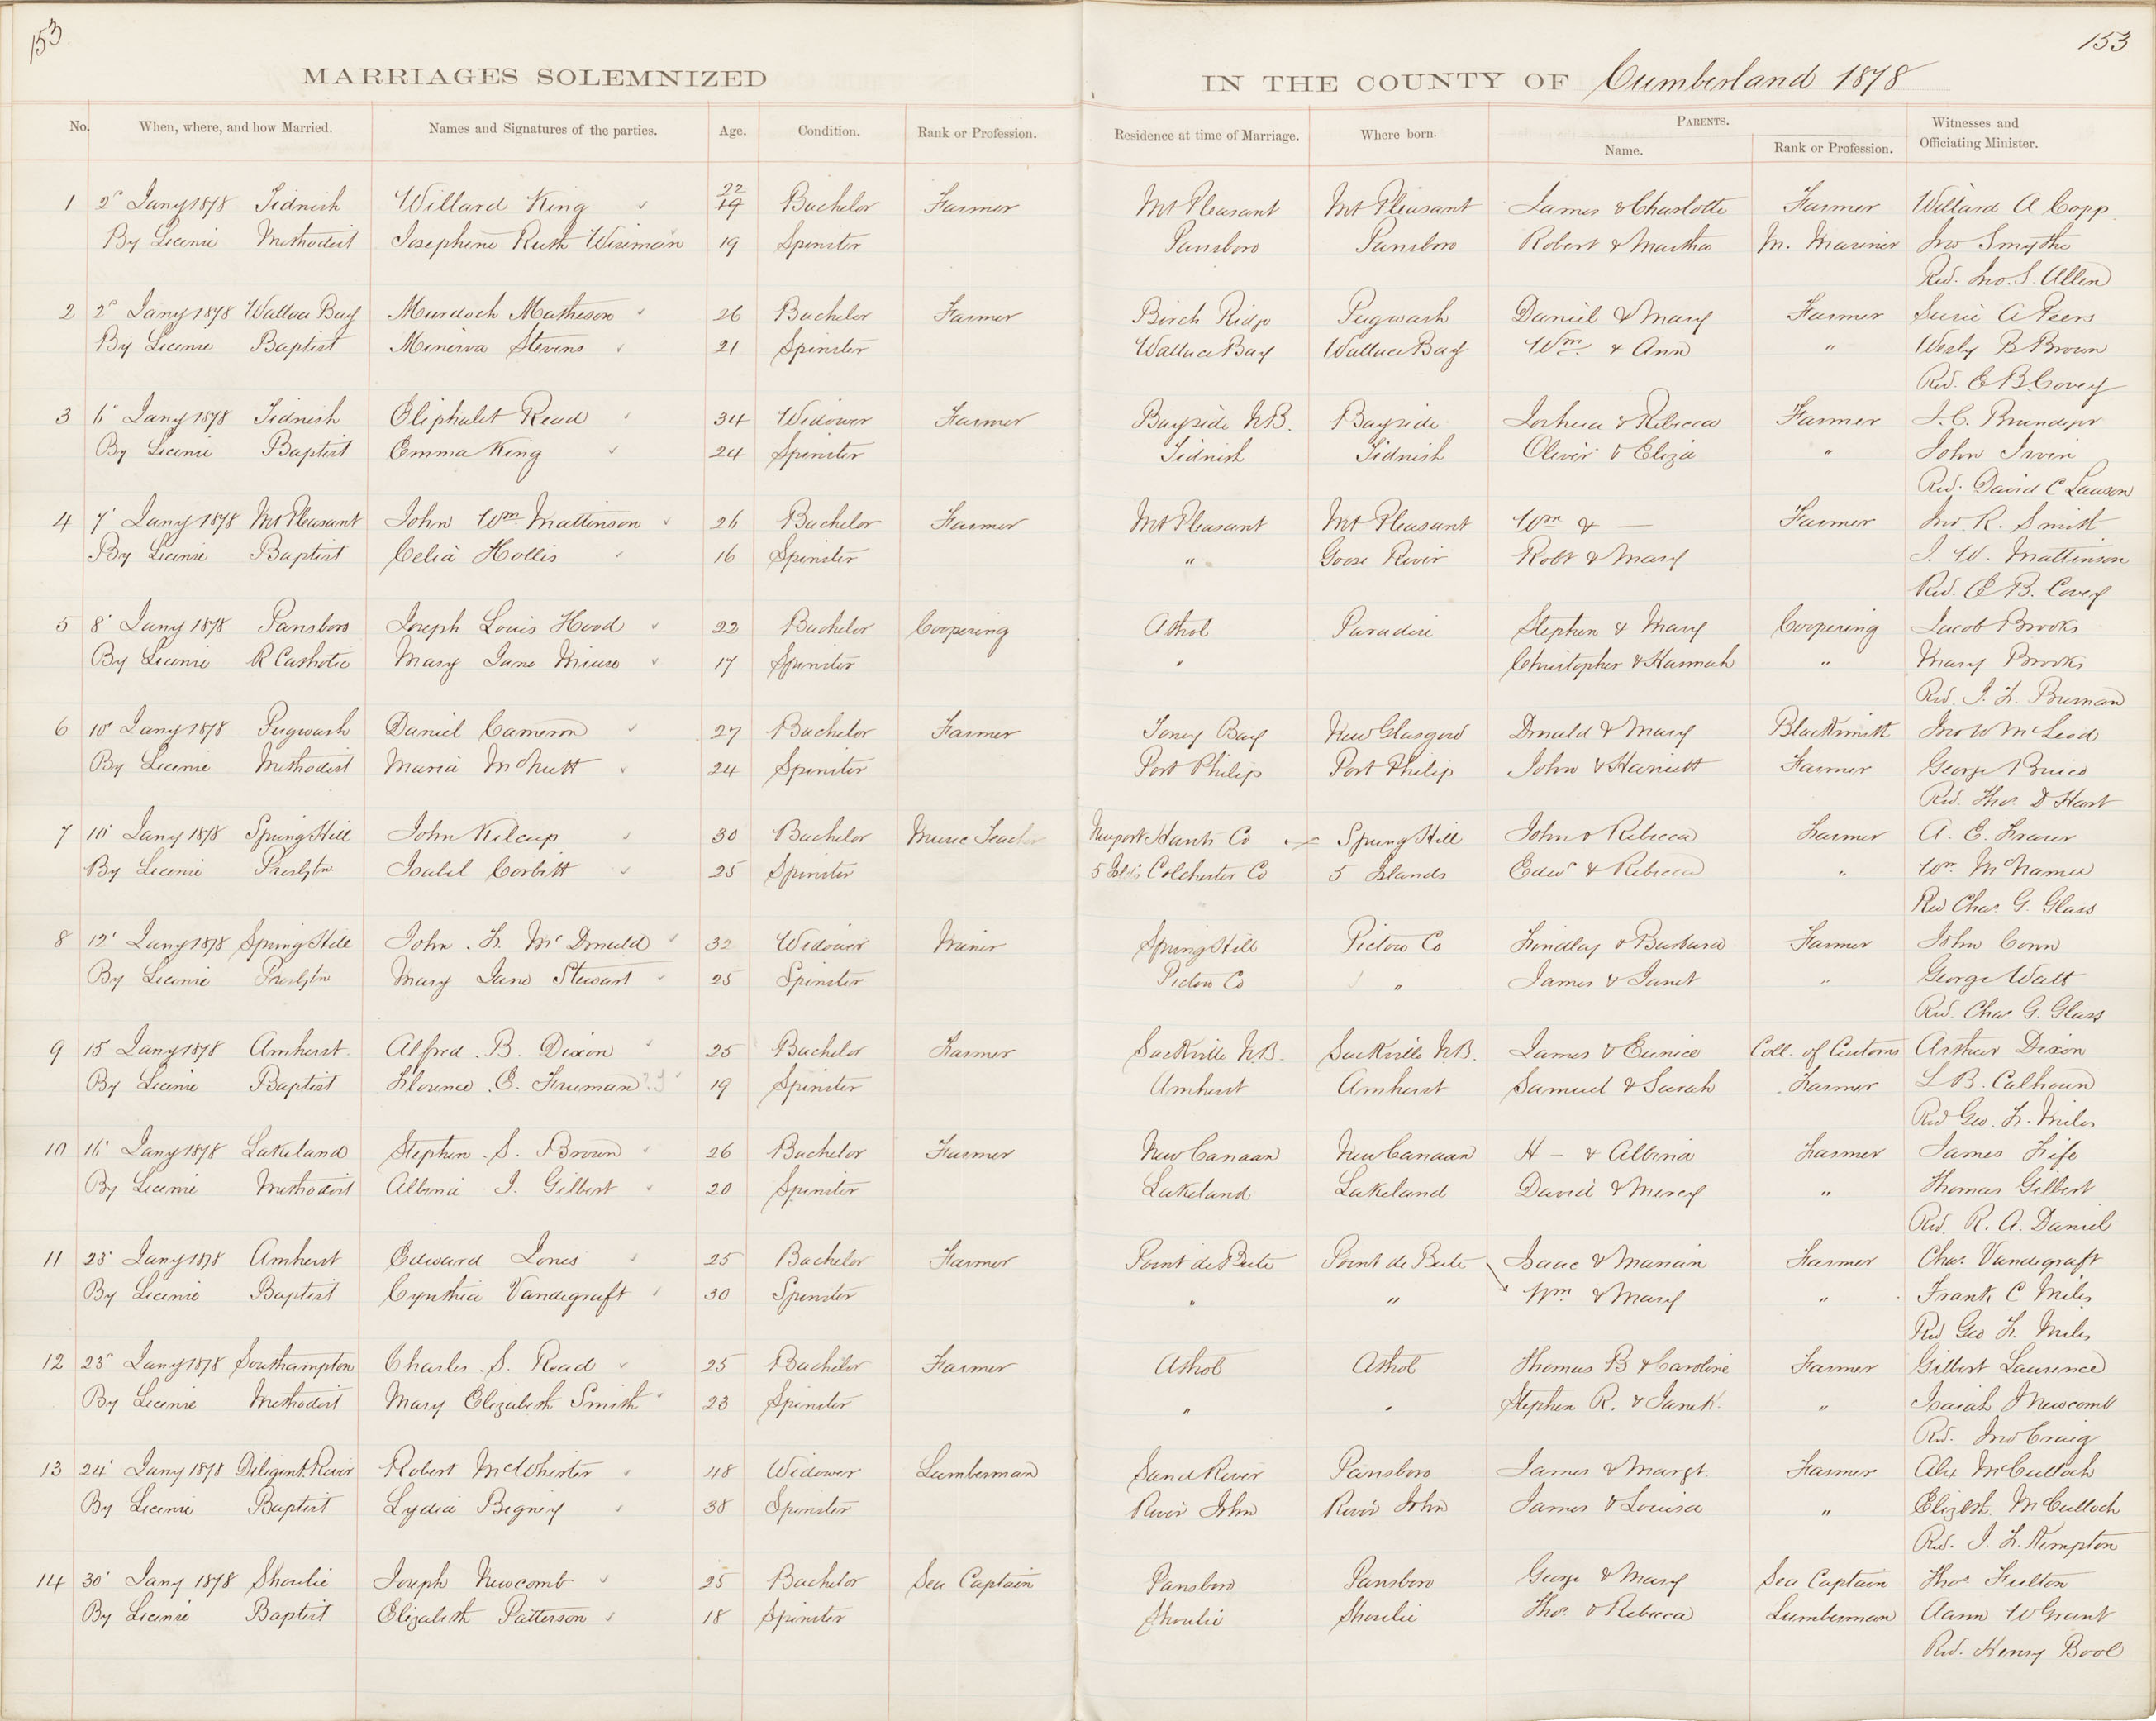 153
153
MARRIAGES SOLEMNIZED IN THE COUNTY OF Cumberland 1878
No. When, where, and how Married. Names and Signatures of the parties. Age. Condition. Rank or Profession. Residence at time of Marriage. Where born. PARENTS. Name. Rank or Profession. Witnesses and Officiating Minister.
1 2" Jany 1878 Tidnish Willard King 22 19 Bachelor Farmer Mt Pleasant Mt Pleasant James & Charlotte Farmer Willard A Copp
By License Methodist Josephine Ruth Wiseman 19 Spinster Parrsboro Parrsboro Robert & Martha M. Mariner Jno Smythe
Rev. Jno. S. Allen
2 2" Jany 1878 Wallace Bay Murdoch Matheson 26 Bachelor Farmer Birch Ridge Pugwash Daniel & Mary Farmer Susie A Peers
By License Baptist Minerva Stevens 21 Spinster Wallace Bay Wallace Bay Wm. & Ann " Wesly B Brown
Rev. E B Covey
3 6" Jany 1878 Tidnish Eliphalet Read 34 Widower Farmer Bayside N.B. Bayside Joshua & Rebecca Farmer
By License Baptist Emma King 24 Spinster Tidnish Tidnish Oliver & Eliza " John Irvin
Rev. David C Lawson
4 7" Jany 1878 Mt Pleasant John Wm Mattinson 26 Bachelor Farmer Mt Pleasant Mt Pleasant Wm & — Farmer Jno. R. Smith
By License Baptist Celia Hollis 16 Spinster " Goose River Robt & Mary J. W. Mattinson
Rev. E B. Covey
5 8" Jany 1878 Parrsboro Joseph Louis Hood 22 Bachelor Coopering Athol Paradise Stephen & Mary Coopering Jacob Brooks
By License R Catholic Mary Jane 17 Spinster " Christopher & Hannah " Mary Brooks
Rev. J. F.
6 10" Jany 1878 Pugwash Daniel Cameron 27 Bachelor Farmer Toney Bay New Glasgow Donald & Mary Blacksmith Jno W McLeod
By License Methodist Maria McNutt 24 Spinster Port Philip Port Philip John & Harriett Farmer George
Rev. Thos. D Hart
7 10" Jany 1878 Spring Hill John Kilcup 30 Bachelor Music Teacher Newport Hants Co Spring Hill John & Rebecca Farmer A. E. Fraser
By License Presbtn Isabel Corbitt 25 Spinster 5 Isld's Colchester Co 5 Islands Edwd & Rebecca " Wm. McNamee
Rev Chas. G. Glass
8 12" Jany 1878 Spring Hill John. F. McDonald 32 Widower Miner Spring Hill Pictou Co Findlay & Barbara Farmer John Conn
By License Presbtn Mary Jane Stewart 25 Spinster Pictou Co " James & Janet " George Watt
Rev. Chas. G. Glass
9 15" Jany 1878 Amherst Alfred. B. Dixon 25 Bachelor Farmer Sackville N.B. Sackville N.B. James & Eunice Coll. of Customs Arthur Dixon
By License Baptist Florence. E. Freeman 19 Spinster Amherst Amherst Samuel & Sarah Farmer L B. Calhoun
Rev Geo. F. Miles
10 16" Jany 1878 Lakeland Stephen. S. Brown 26 Bachelor Farmer New Canaan New Canaan H — & Albina Farmer James Fife
By License Methodist Albina J. Gilbert 20 Spinster Lakeland Lakeland David & Mercy " Thomas Gilbert
Rev. R. A. Daniel
11 23" Jany 1878 Amherst Edward Jones 25 Bachelor Farmer Point de Bute Point de Bute Isaac & Marian Farmer Chas. Vandegraft
By License Baptist Cynthia Vandegraft 30 Spinster " " Wm & Mary " Frank C Miles
Rev Geo F. Miles
12 23" Jany 1878 Southampton Charles. S. Read 25 Bachelor Farmer Athol Athol Thomas B & Caroline Farmer Gilbert Laurence
By License Methodist Mary Elizabeth Smith 23 Spinster " " Stephen R. & Janet " Isaiah J Newcomb
Rev. Jno Craig
13 24" Jany 1878 Diligent River Robert McWhirter 48 Widower Lumberman Sand River Parrsboro James & Margt. Farmer Alex McCulloch
By License Baptist Lydia Bigney 38 Spinster River John River John James & Louisa " Elizbth. McCulloch
Rev. J. F. Kempton
14 30" Jany 1878 Shoulie Joseph Newcomb 25 Bachelor Sea Captain Parrsboro Parrsboro George & Mary Sea Captain Thos Fulton
By License Baptist Elizabeth Patterson 18 Spinster Shoulie Shoulie Thos. & Rebecca Lumberman Aaron W Grant
Rev. Henry Bool